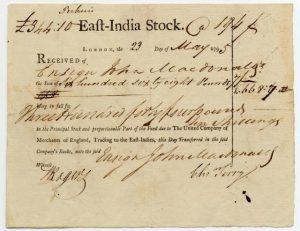 £344:10 East-India Stock. @ 194
LONDON, the 23 Day of May 1795
RECEIVED of
Ensign John Macdonald
the Sum of Six hundred sixty eight Pounds
being in full for
Three Hundred forty four pounds
ten Shillings
In the Principal Stock and proportionable Part of the Fund due to The United Company of
Merchants of England, Trading to the East-Indies, this Day Transferred in the said
Company's Books, unto the said Ensign John Macdonald
Witness
Rogers